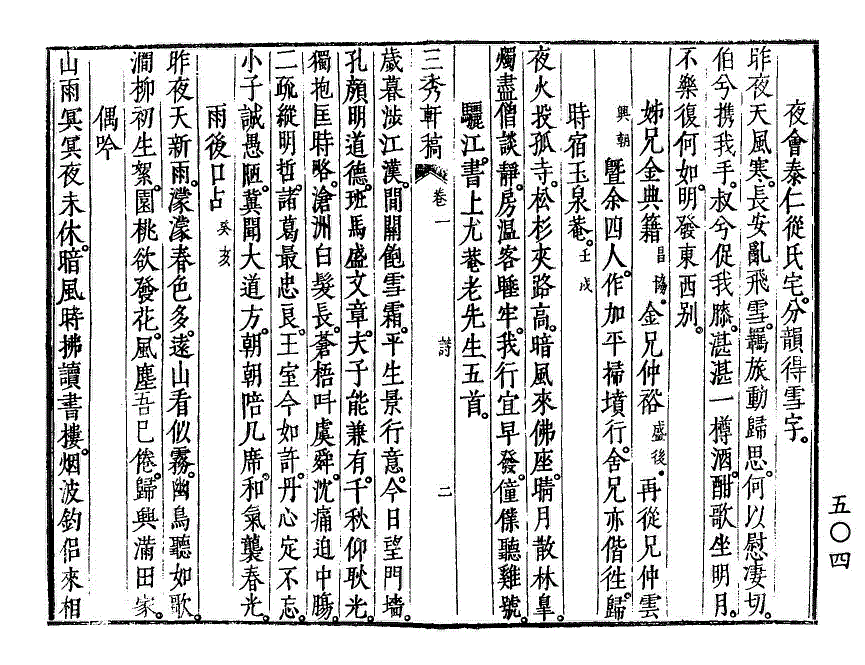 夜會泰仁從氏宅。分韻得雪字。
昨夜天風寒。長安亂飛雪。羈旅動歸思。何以慰凄切。
伯兮携我手。叔兮促我膝。湛湛一樽酒。酣歌坐明月。
不樂復何如。明發東西別。
姊兄金典籍昌協。金兄仲裕盛後。再從兄仲雲
興朝曁余四人。作加平掃墳行。舍兄亦偕往。歸
時宿玉泉菴。壬戌
夜火投孤寺。松杉夾路高。暗風來佛座。晴月散林皐。
燭盡僧談靜。房温客睡牢。我行宜早發。僮僕聽雞號。
驪江。書上尤菴老先生五首。
三秀軒稿 卷一 詩 二
歲暮涉江漢。間關飽雪霜。平生景行意。今日望門墻。
孔顔明道德。班馬盛文章。夫子能兼有。千秋仰耿光。
獨抱匡時略。滄洲白髮長。蒼梧叫虞舜。沈痛迫中膓。
二疏縱明哲。諸葛最忠良。王室今如許。丹心定不忘。
小子誠愚陋。冀聞大道方。朝朝陪几席。和氣襲春光。
雨後口占癸亥
昨夜天新雨。濛濛春色多。遠山看似霧。幽鳥聽如歌。
澗柳初生絮。園桃欲發花。風塵吾已倦。歸興滿田家。
偶吟
山雨冥冥夜未休。暗風時拂讀書樓。烟波釣侣來相
五〇四